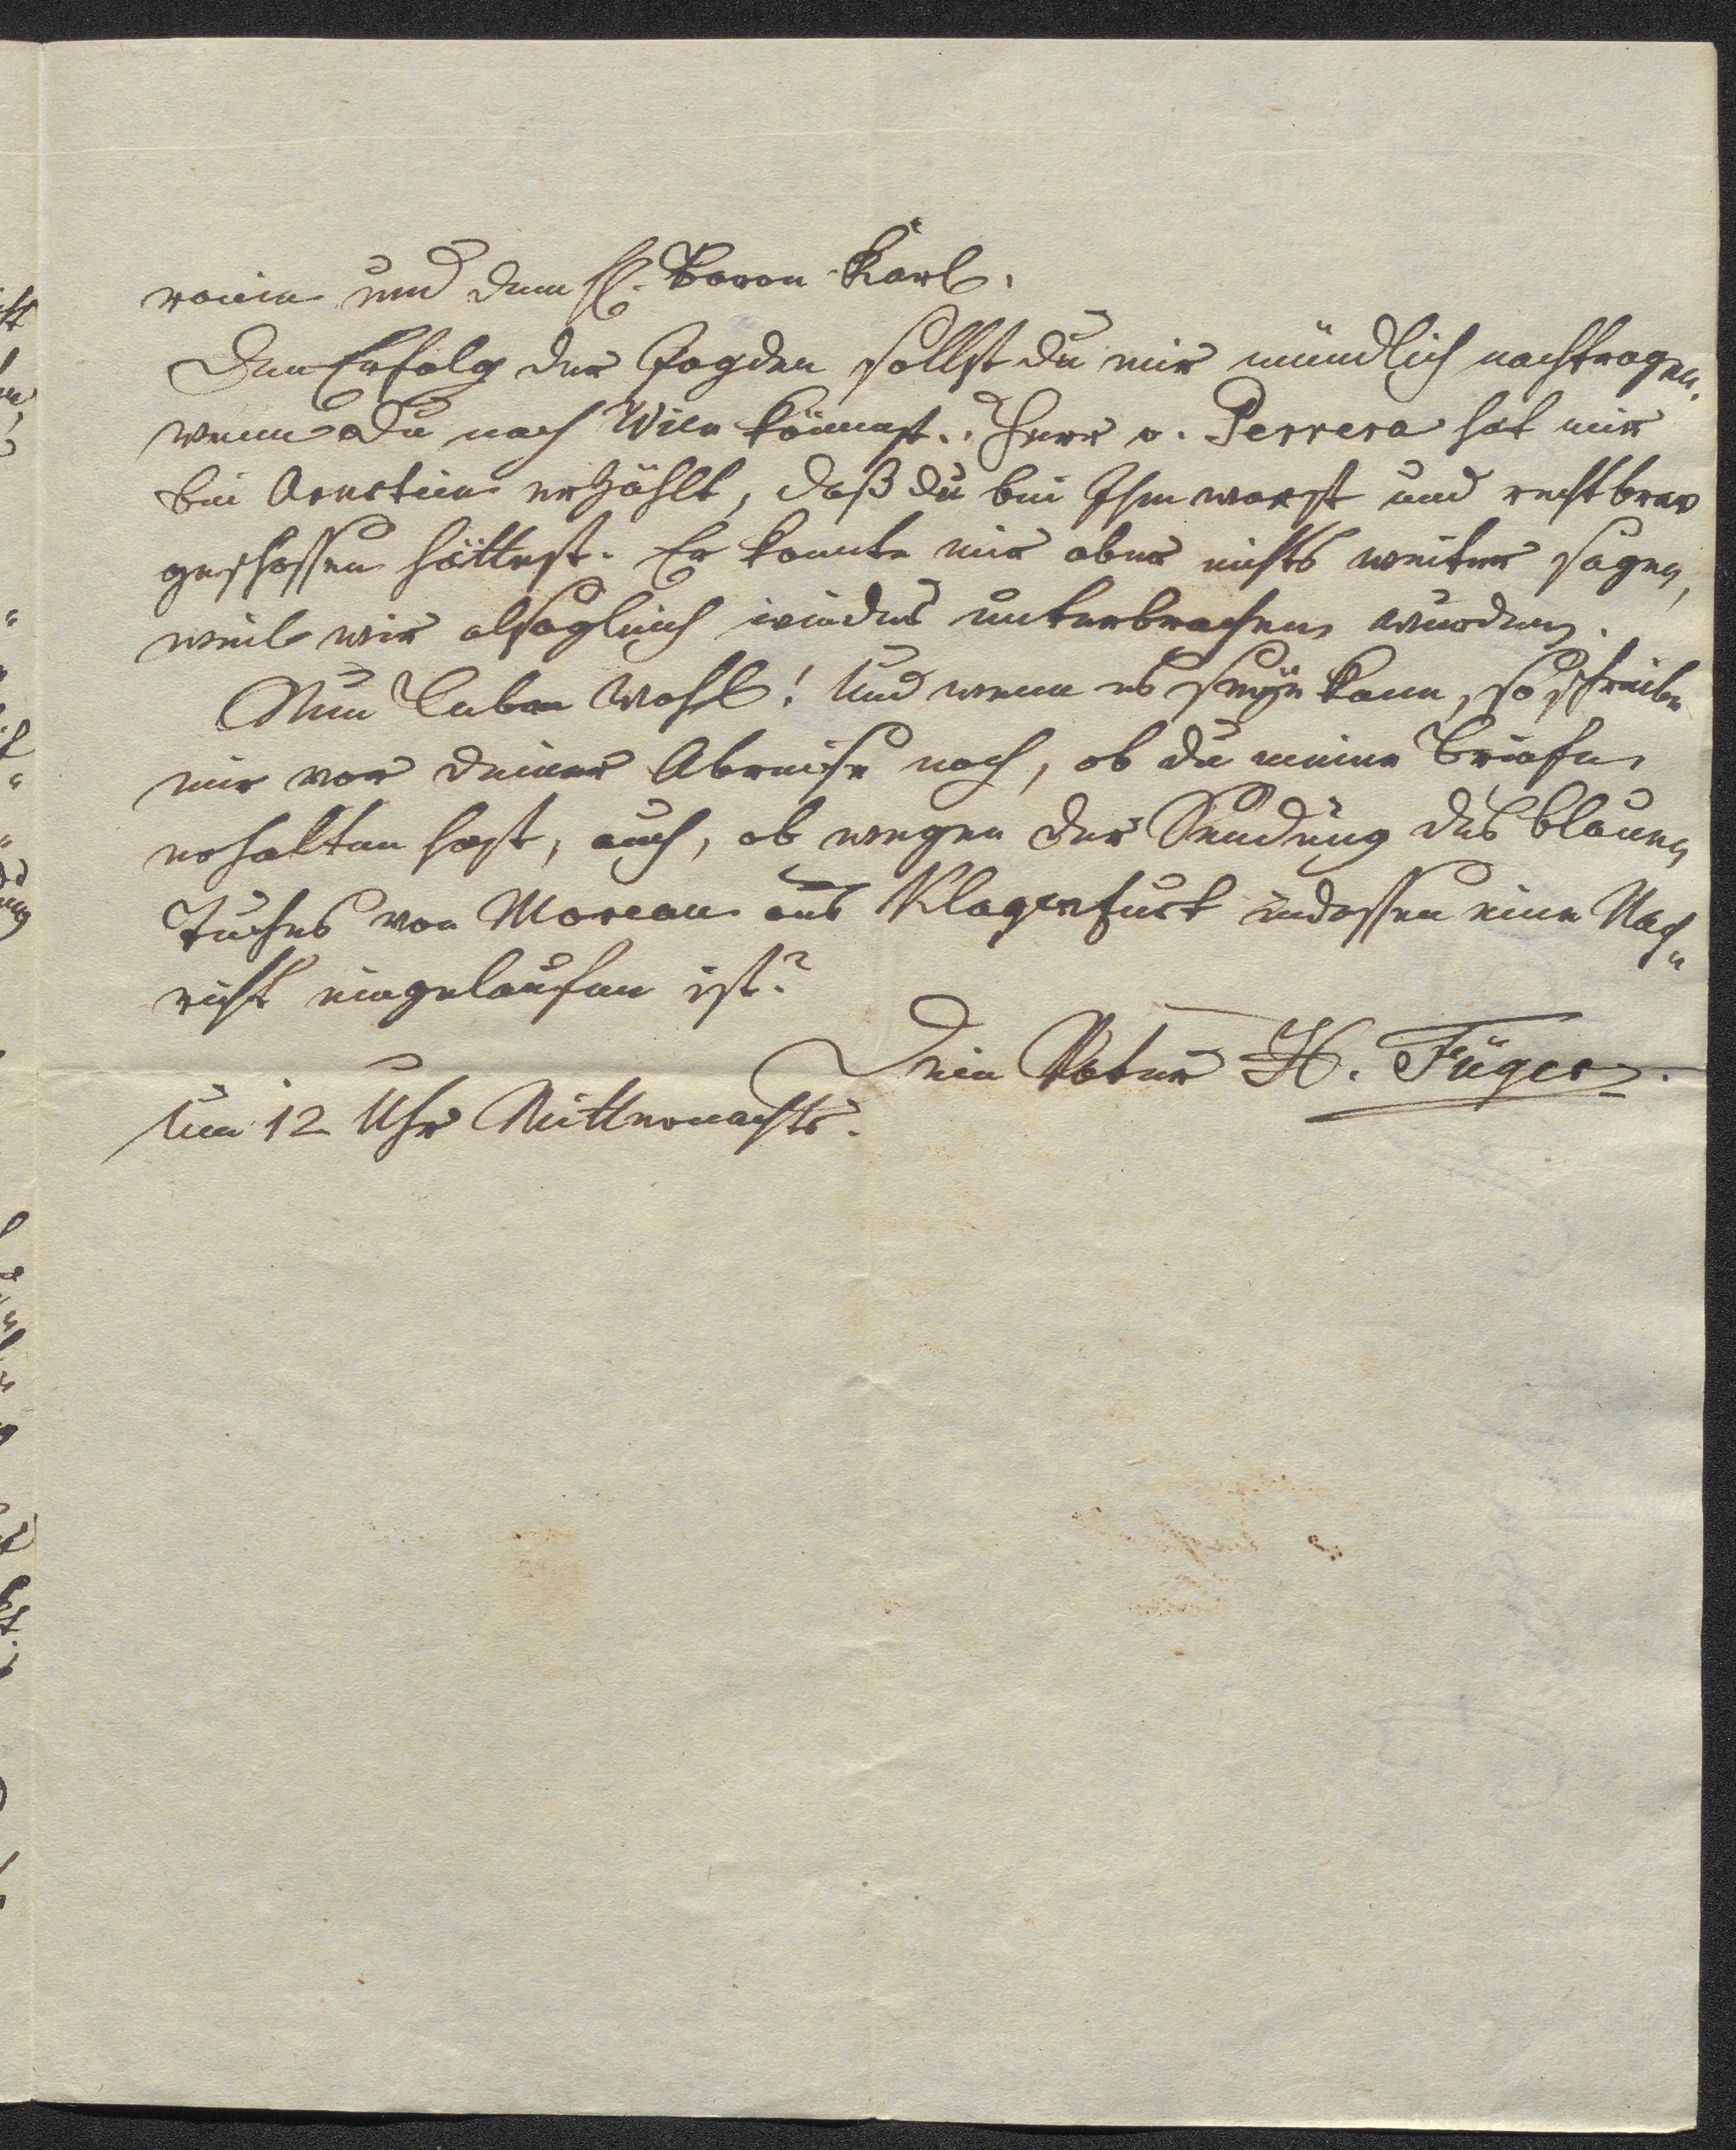 ronin und dem H. Baron Karl.
Den Erfolg der Jagden sollst du mir mündlich nachtragen,
wenn du nach Wien kömmst. Herr v. Perrera hat mir
bei Arnstein erzählt, daß du bei Ihm warst und recht brav
geschossen hättest. Er konnte mir aber nichts weiter sagen,
weil wir alsogleich wieder unterbrochen wurden.
Nun Leben wohl! Und wenn es seÿn kann, so schreibe
mir vor deiner Abreise noch, ob du meine Briefe
erhalten hast, auch, ob wegen der Sendung des blauen
Tuches von Moreau aus Klagenfurt indessen eine Nach„
richt eingelaufen ist?
Dein Vater H. Füger.
Um 12 Uhr Mitternachts.